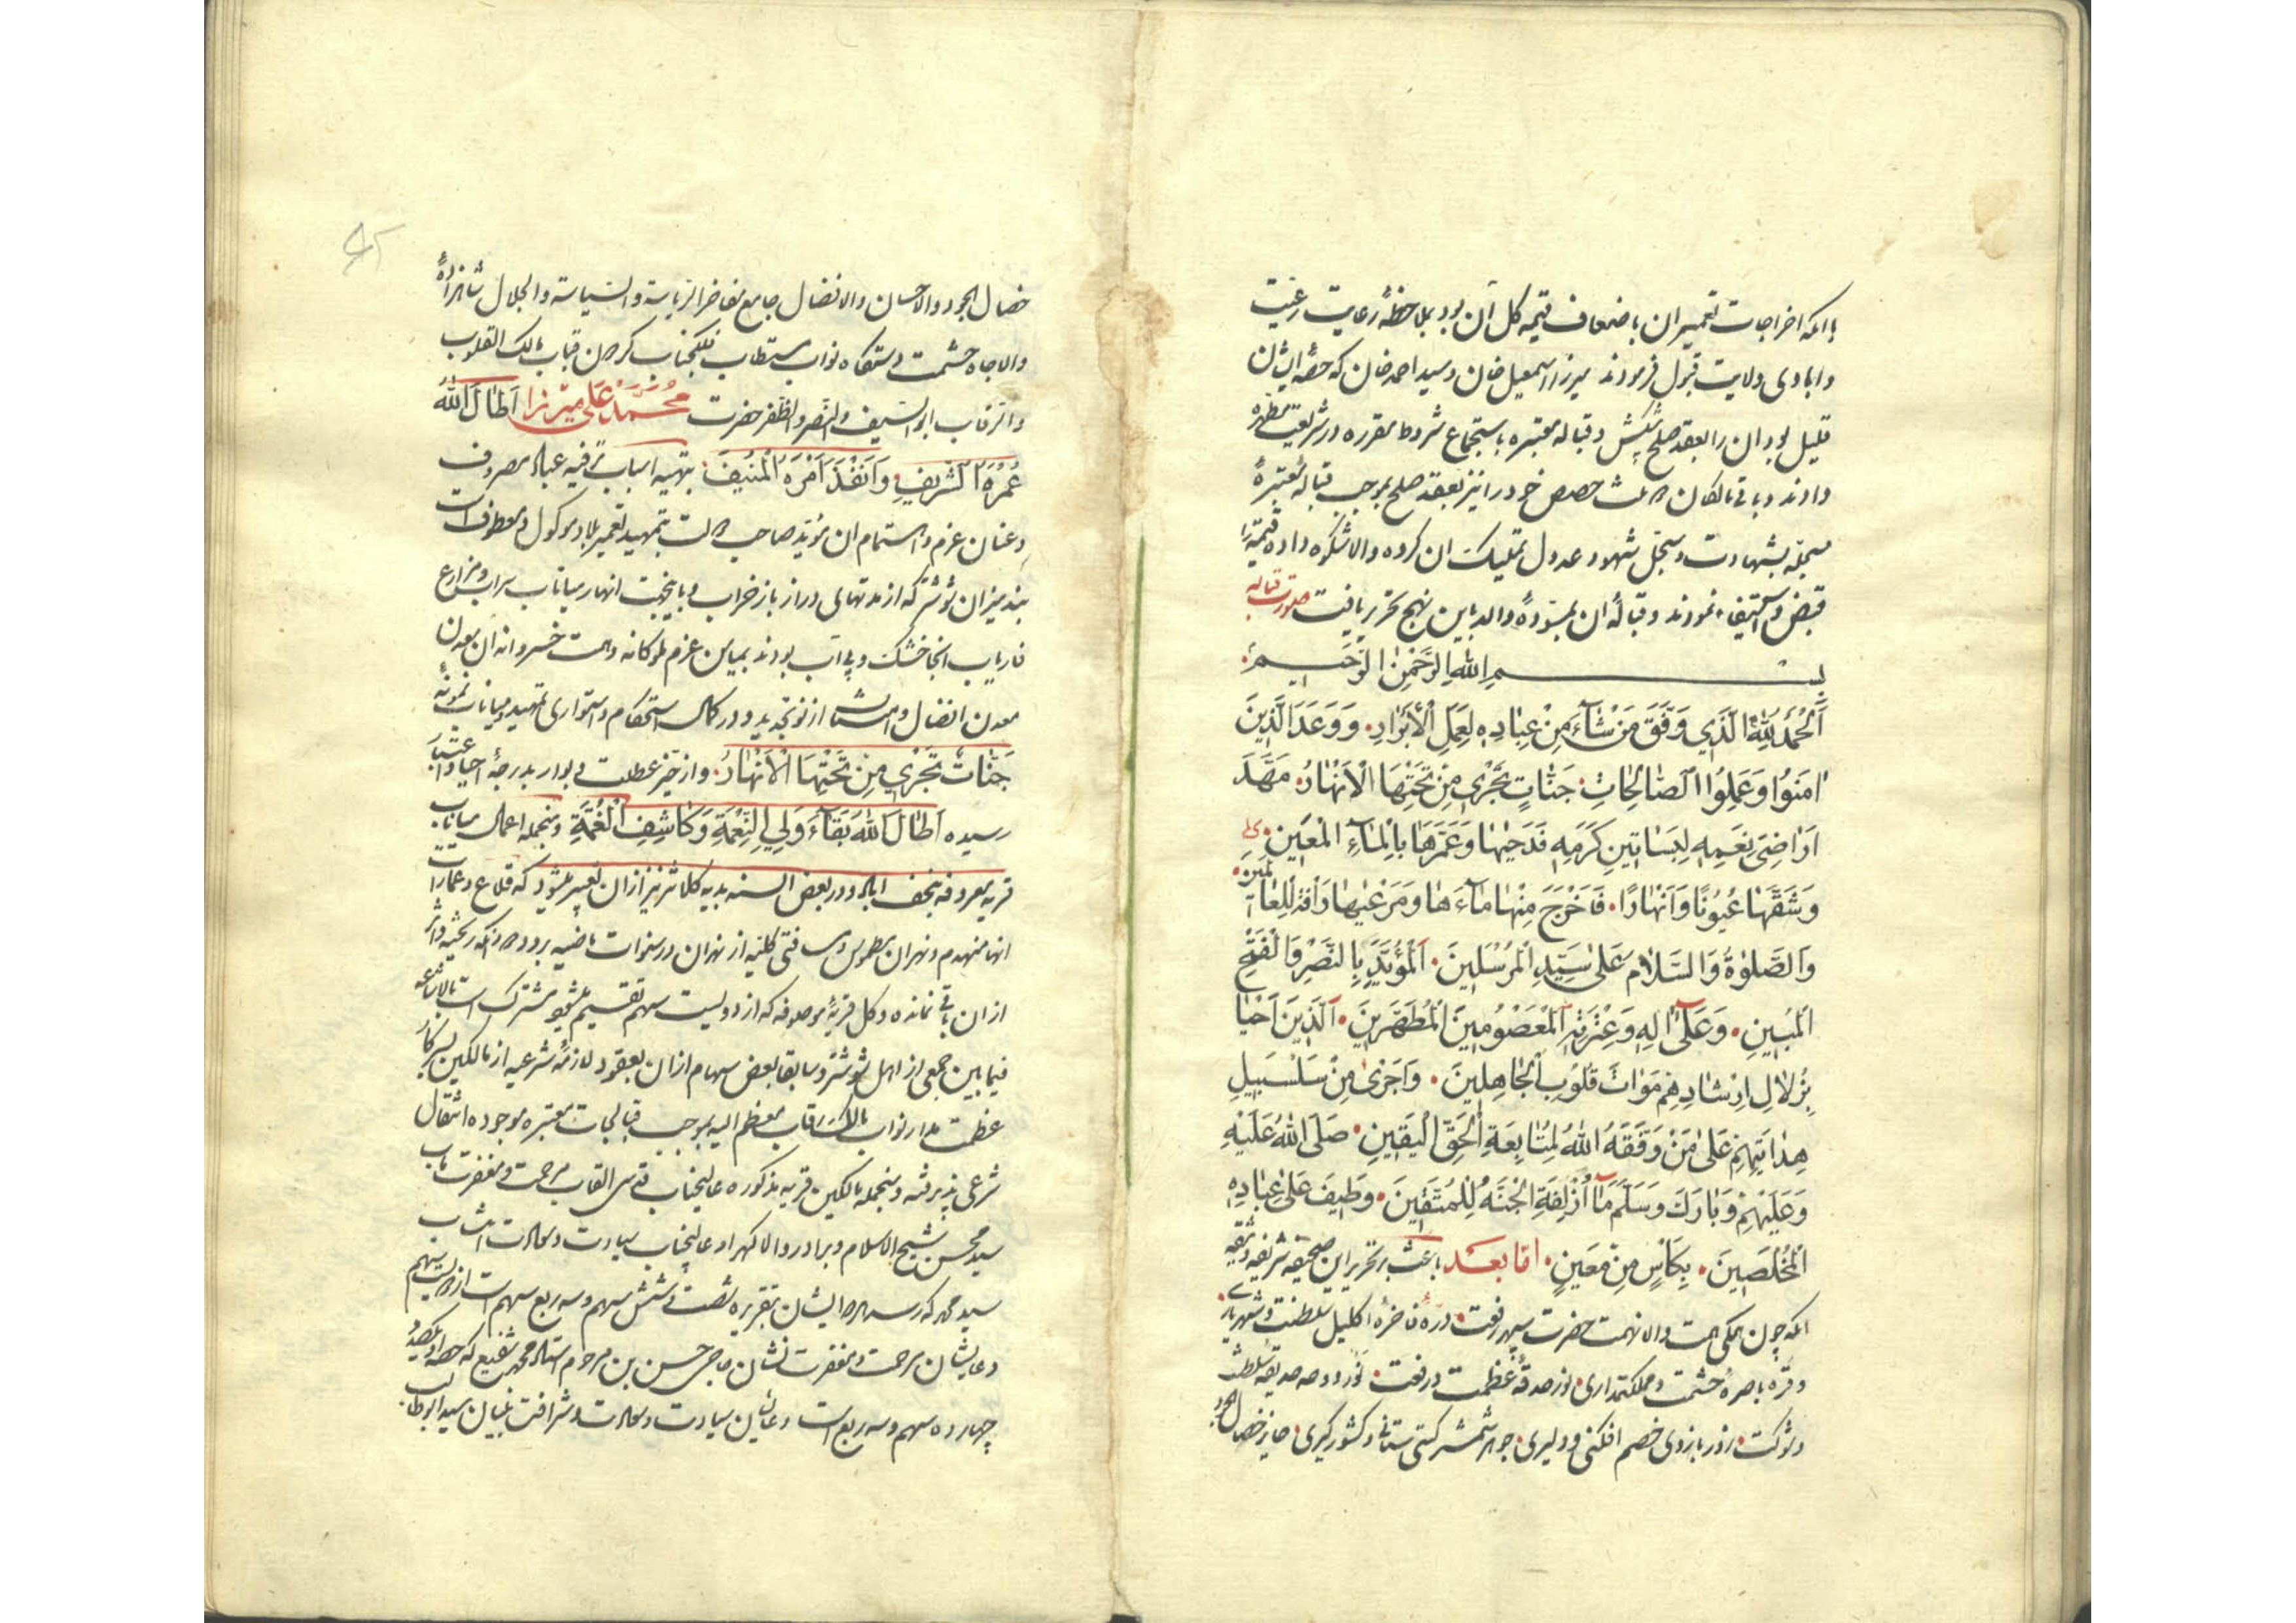 با آنکه اخراجات تعمیر ان باضعاف قیمه کل آن بود بملاحظهٔ رعایت رعیت
و ابادی ولایت قبول فرمودند میرزا اسمعیل خان و سید احمد خان که حصهٔ ایشان
قلیل بود ان را بعقد صلح پیشکش و قباله معتبره باستجماع شروط مقرره در شریعت مطهره
دادند و باقی مالکان حصص خود را نیز بعقد صلح بموجب قبالهٔ معتبرهٔ
مسجله بشهادت و سجل شهود عدول تملیک ان کرده والاشکوه داده قیمة را
قبض و استیفاء نمودند و قبالهٔ ان بمسودهٔ والد باین نهج تحریر یافت صورت قباله
بسم الله الرحمن الرحیم
اَلْحَمْدُ لِلّٰهِ الَّذِي وَفَّقَ مَنْ شٰآءَ مِنْ عِبٰادِهِ لِعَمَلِ الْأَبْرٰارِ. وَوَعَدَ الَّذِينَ
اٰمَنُوا وَعَمِلُوا الصّٰالِحٰاتِ جَنّٰاتٍ تَجْرِي مِنْ تَحْتِهَا الْأَنْهٰارُ. مَهَّدَ
اَرٰاضِيَ نِعَمِهِ لِبَسٰاتِينِ كَرَمِهِ فَدَحٰيهٰا وَعَمَّرَهٰا بِالْمٰآءِ الْمَعِينِ.
وَشَقَّهٰا عُيُونًا وَاَنْهٰارًا. فَاَخْرَجَ مِنْهٰا مٰآءَهٰا وَمَرْعٰيهٰا رَأْفَةً لِلْعٰالَمِينَ.
وَالصَّلٰوةُ وَالسَّلٰامُ عَلىٰ سَيِّدِ الْمُرْسَلِينَ. اَلْمُؤَيَّدِ بِالنَّصْرِ وَالْفَتْحِ
الْمُبِينِ. وَعَلىٰ اٰلِهِ وَعِتْرَتِهِ الْمَعْصُومِينَ الْمُطَهَّرِينَ. اَلَّذِينَ اَحْيٰا
بِزُلٰالِ اِرْشٰادِهِمْ مَوٰاتَ قُلُوبِ الْجٰاهِلِينَ. وَاَجْرىٰ مِنْ سَلْسَبِيلِ
هِدٰايَتِهِمْ عَلىٰ مَنْ وَفَّقَهُ اللّٰهُ لِمُتٰابِعَةِ الْحَقِّ الْيَقِينِ. صَلَّى اللّٰهُ عَلَيْهِ
وَعَلَيْهِمْ وَبٰارَكَ وَسَلَّمَ مٰا اُزْلِفَةِ الْجَنَّةُ لِلْمُتَّقِينَ. وَطِيفَ عَلىٰ عِبٰادِهِ
الْمُخْلَصِينَ. بِكَأْسٍ مِنْ مَعِينٍ. اما بعد باعث بر تحریر این صحیفه شریفه وثیقه
آنکه چون همگی همت والا نهمت حضرت سپهر رفعت. درهٔ فاخرهٔ اکلیل سلطنت و شهریاری.
و قرهٔ باصرهٔ حشمت و مملکتداری. نور حدقهٔ عظمت و رفعت. نور حدیقه سلطنت
و شوکت. زور بازوی خصم افکنی و دلیری. جوهر شمشیر کیتی ستانی و کشور کیری. حایز خصال الجود
خصال الجود والاحسان والافضال جامع مفاخر الریاسة والسیاسة والجلال شاهزادهٔ
والا جاه حشمت دستکاه نواب مستطاب فلکجناب کردون قباب مالک القلوب
والرقاب ابو السیف والنصر والظفر حضرت مُحَمَّد عَلی میرزا اَطٰالَ اللّٰهُ
عُمْرَهُ الشَّرِيفِ. وَاَنْفَذَ اَمْرَهُ الْمُنِيفَ. بتهیه اسباب ترفیه عباد مصروف
و عنان عزم و اهتمام ان مؤید صاحب دولت بتمهید تعمیر بلاد موکول و معطوف است
بند میزان شوشتر که از مدتهای دراز باز خراب و بایجهت انهار میاناب سراب و مزارع
فاریاب انجا خشک و بی آب بودند بمیامن عزم ملوکانه و همت خسروانه آن معدن
معدن افضال و امتنان از نو تجدید و در کمال استحکام و استواری تمهید و میاناب نمونهٔ
جَنّٰاتٌ تَجْرِي مِنْ تَحْتِهَا الْأَنْهٰارُ. و از حیز عطلت و بوار بدرجهٔ احیا و اعتبار
رسیده اَطٰالَ اللّٰهُ بَقٰآءَ وَلِيِّ النِّعْمَةِ وَكٰاشِفِ الْغُمَّةِ و منجمله اعمال میاناب
قریه معروفه بنجف اباد و در بعض السنه بدیه کلانتر نیز از ان تعبیر میشود که قلاع و عمارات
انها منهدم و نهران مطموس و مسافتی کلیه از نهران در سنوات ماضیه برودخانه ریخته و اثر
از ان باقی نمانده و کل قریهٔ موصوفه که از دویست سهم تقسیم میشود مشترک است بالاشاعه
فیما بین جمعی از اهل شوشتر و سابقا بعض سهام از ان بعقود لازمهٔ شرعیه از مالکین بسرکار
عظمت مدار نواب مالک رقاب معظم الیه بموجب قبالجات معتبره موجوده انتقال
شرعی پذیرفته و منجمله مالکین قریه مذکوره عالیجناب قدسی القاب مرحمت و مغفرت ماب
سید محسن شیخ الاسلام و برادر والا کهر او عالیجناب سیادت و سعادت انتساب
سید محمد که رسد ایشان بتقریره شصت و شش سهم و سه ربع سهم است از دویست سهم
و عالیشان مرحمت و مغفرت نشان حاجی حسن بن مرحوم استاد محمد شفیع که حصه او یکصد و
چهارده سهم و سه ربع است و عالیشان سیادت و سعادت و شرافت نشان سید ابوطالب